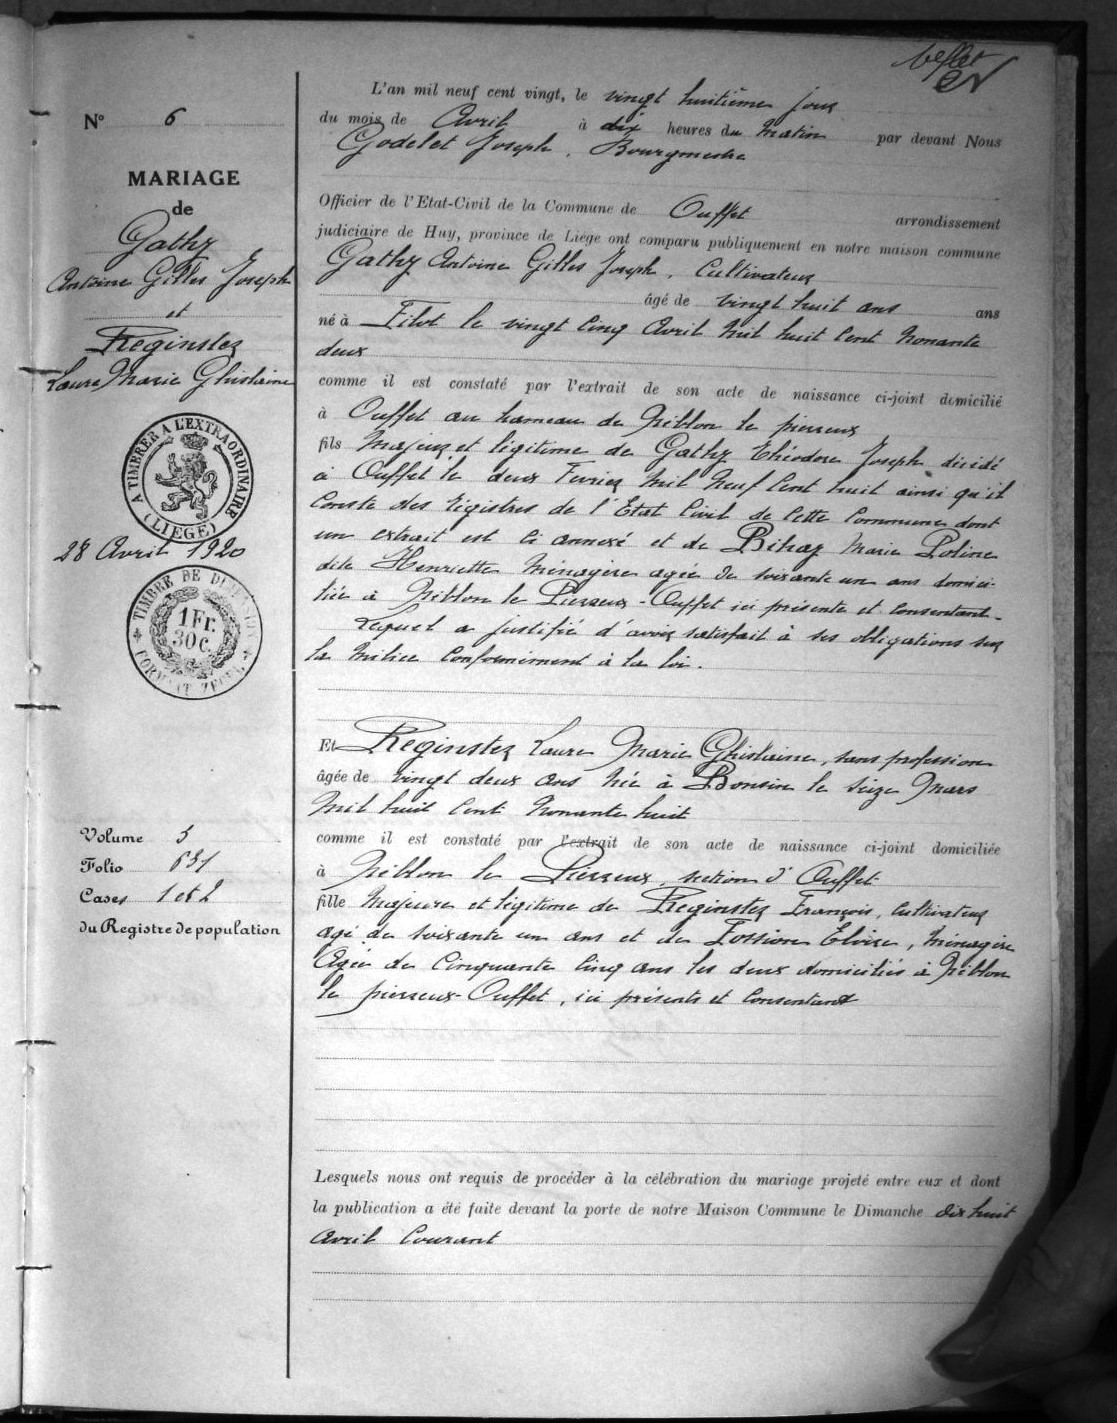 N° 6
MARIAGE
de
Gathy
Antoine Gilles Joseph
et
Reginster
Laure Marie Ghislaine
A TIMBRER A L'EXTRAORDINAIRE
(LIEGE)
28 Avril 1920
TIMBRE DE DI
1 Fr.
30 C.
FORMAT
Volume 5
Folio 631
Cases 1 et 2
du Registre de population
L'an mil neuf cent vingt, le vingt huitième jour
du mois de Avril à dix heures du Matin par devant Nous
Godelet Joseph, Bourgmestre
Officier de l'Etat-Civil de la Commune de Ouffet arrondissement
judiciaire de Huy, province de Liége ont comparu publiquement en notre maison commune
Gathy Antoine Gilles Joseph, Cultivateur
âgé de vingt huit ans ans
né à Filot le vingt cinq Avril Mil huit Cent Nonante
deux
comme il est constaté par l'extrait de son acte de naissance ci-joint domicilié
à Ouffet au hameau de Néblon le pierreux
fils Majeur et légitime de Gathy Théodore Joseph décédé
à Ouffet le deux Fevrier Mil Neuf Cent huit ainsi qu'il
Conste des Régistres de l'Etat Civil de Cette Commune dont
un extrait est ci annexé et de Bihay Marie Poline
dite Henriette Ménagère agée de soixante un ans domici-
liée à Néblon le Pierreux-Ouffet ici présente et Consentant-
Lequel a justifié d'avoir satisfait à ses obligations sur
la Milice Conformément à la loi.
Et Reginster Laure Marie Ghislaine, sans profession
âgée de vingt deux ans Née à Bonsin le Seize Mars
Mil huit Cent Nonante huit
comme il est constaté par l'extrait de son acte de naissance ci-joint domiciliée
à Néblon le Pierreux, section d'Ouffet
fille Majeure et légitime de Reginster François, Cultivateur
agé de soixante un ans et de Fossion Eloïse, Ménagère
Agée de Cinquante Cinq ans les deux domiciliés à Néblon
le pierreux-Ouffet, ici présents et Consentant
Lesquels nous ont requis de procéder à la célébration du mariage projeté entre eux et dont
la publication a été faite devant la porte de notre Maison Commune le Dimanche dix huit
Avril Courant